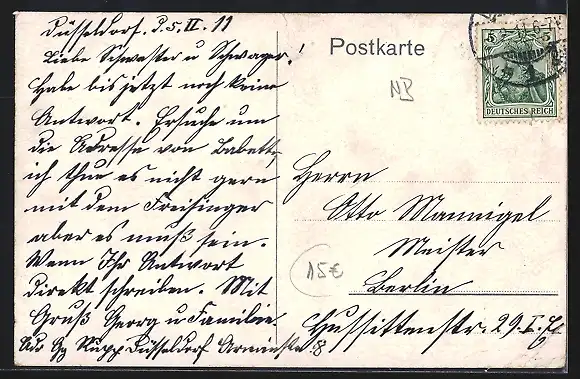 Düsseldorf. d. 5. II. 11
Liebe Schwester u Schwager!
Habe bis jetzt noch keine
Antwort. Ersuche um
die Adresse von Babette,
ich thue es nicht gern
mit dem Freisinger
aber es muß sein.
Wenn Ihr Antwort
direkt schreiben. Mit
Gruß Georg u Familie.
Adr Gg Rupp Düsseldorf Arminstr. 8
Postkarte
NB
5 5
DEUTSCHES REICH
Herrn
Otto Mannigel
Meister
Berlin
Hussittenstr. 29. I.
15€